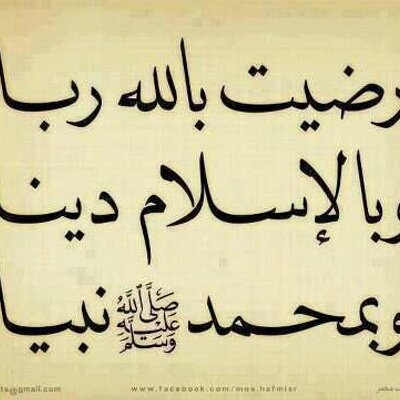 رضيت بالله ربا
وبالإسلام دينا
وبمحمد صلى الله عليه وسلم نبيا
ts@gmail.com www.facebook.com/mos.hafmisr